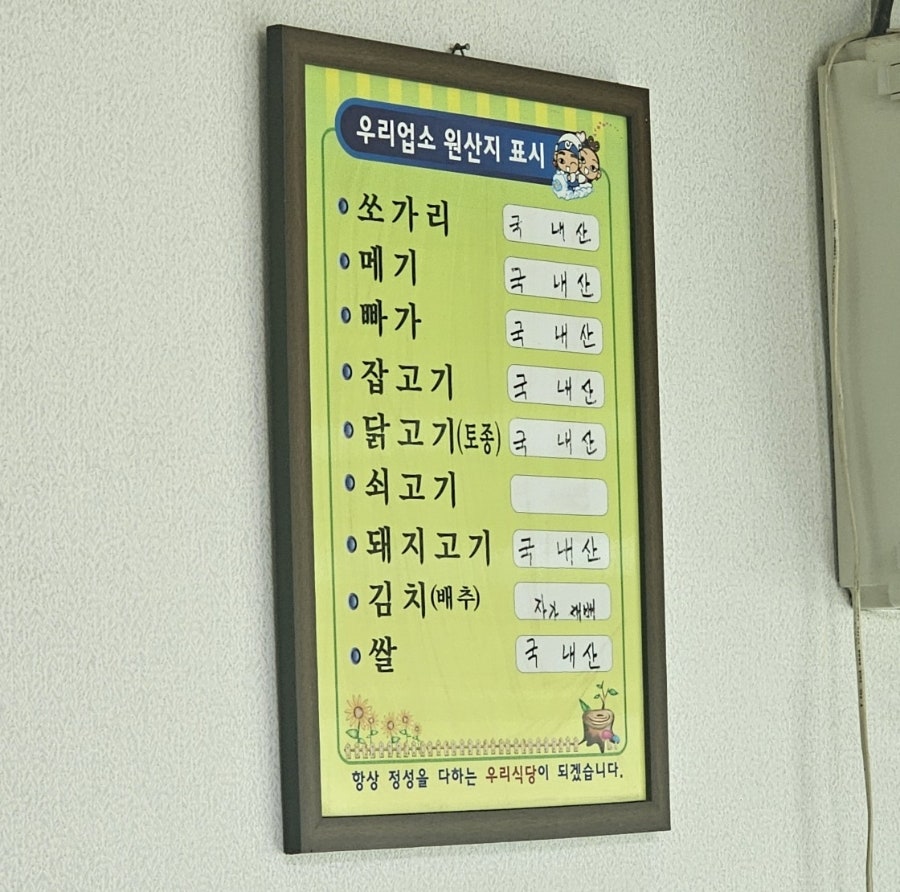 우리업소 원산지 표시
쏘가리 국 내 산
메기 국 내 산
빠가 국 내 산
잡고기 국 내 산
닭고기(토종) 국 내 산
쇠고기
돼지고기 국 내 산
김치(배추) 자가 재배
쌀 국 내 산
항상 정성을 다하는 우리식당이 되겠습니다.